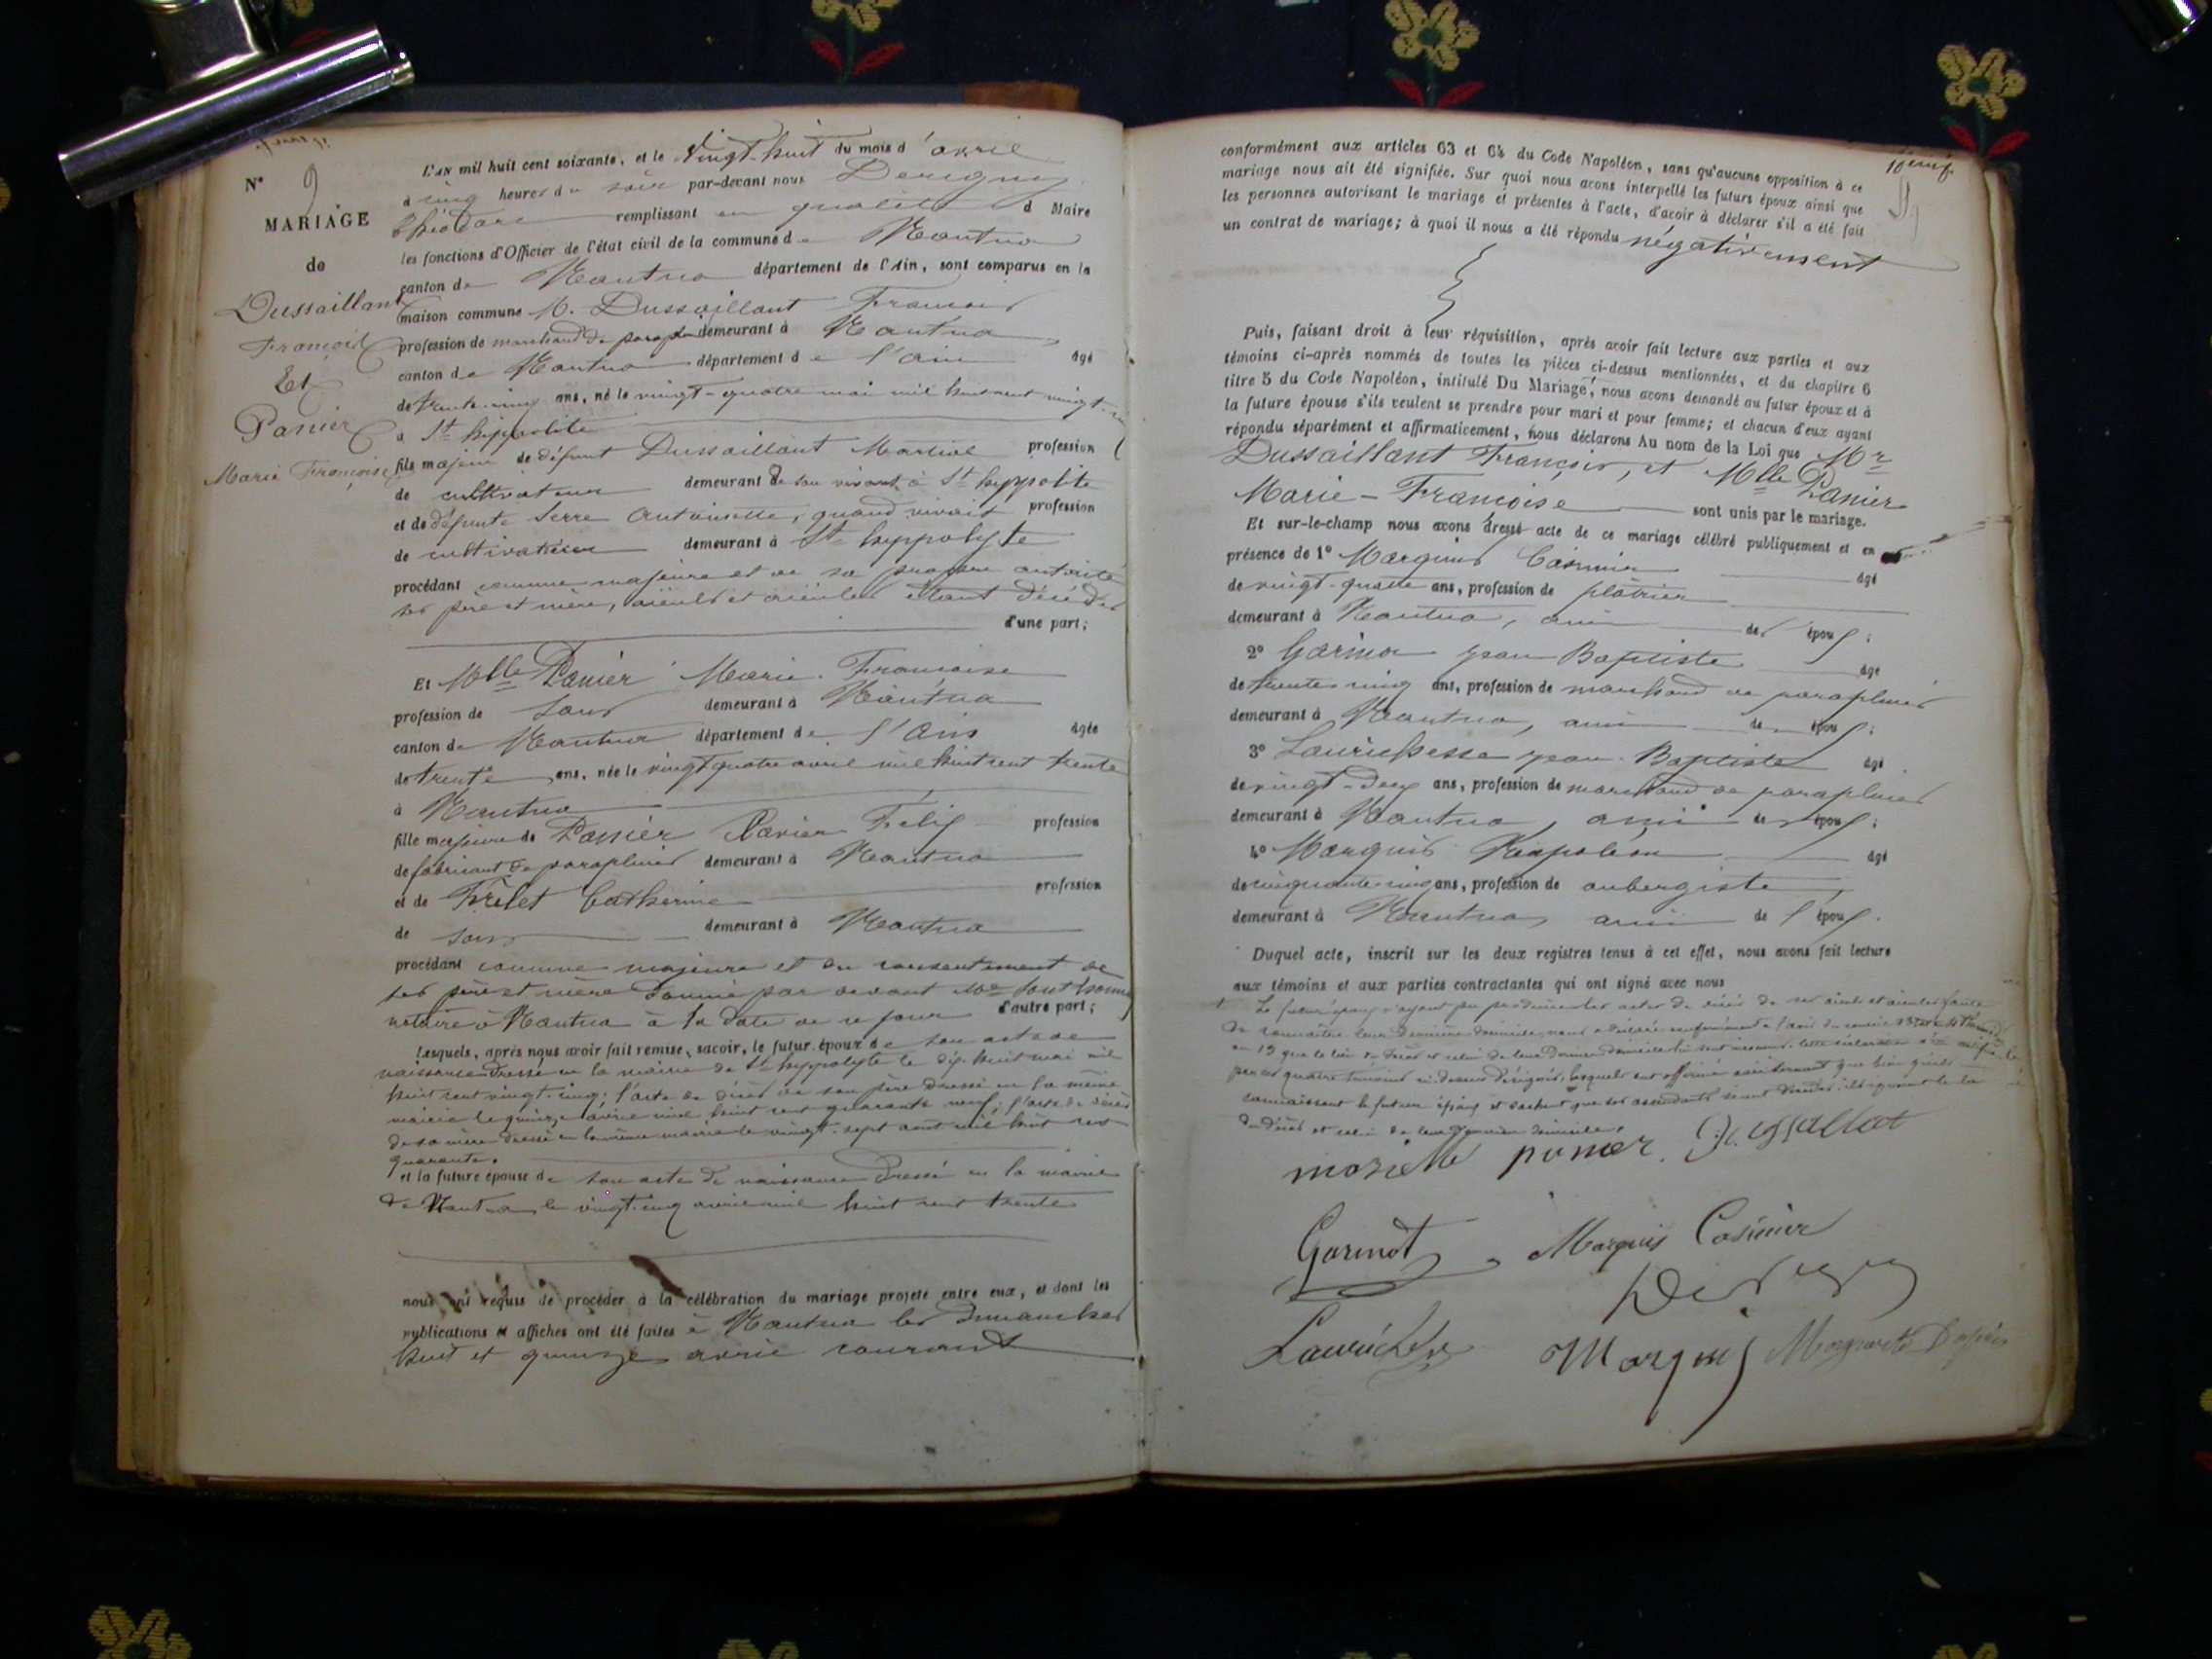 N° 9
MARIAGE
de
Dussaillant
François
Et
Panier
Marie Françoise
L'AN mil huit cent soixante, et le vingt-huit du mois d'avril
à cinq heures du soir par-devant nous Derigny
Théodore remplissant en qualité d Maire
les fonctions d'Officier de l'état civil de la commune de Nantua
canton de Nantua département de l'Ain, sont comparus en la
maison commune M. Dussaillant François
profession de marchand de parapluies demeurant à Nantua
canton de Nantua département de l'ain âgé
de trente-cinq ans, né le vingt-quatre mai mil huit cent vingt-
à St hippolite
fils majeur de défunt Dussaillant Martial profession
de cultivateur demeurant de son vivant à St hyppolite
et de défunte Serre Antoinette, quand vivait profession
de cultivatrice demeurant à St hyppolyte
procédant comme majeur et de sa propre autorité
ses père et mère, aïeuls et aïeules étant décédés
d'une part;
Et Mlle Panier Marie-Françoise
profession de sans demeurant à Nantua
canton de Nantua département de l'Ain âgée
de trente ans, née le vingt quatre avril mil huit cent trente
à Nantua
fille majeure de Panier Félix profession
de fabricant de parapluies demeurant à Nantua
et de Frelet Catherine profession
de sans demeurant à Nantua
procédant comme majeure et du consentement de
ses père et mère donné par devant Me
notaire à Nantua à la date de ce jour d'autre part;
Lesquels, après nous avoir fait remise, savoir, le futur époux de son acte de
naissance dressé en la mairie de St hyppolyte le dix huit mai mil
huit cent vingt-cinq; l'acte de décès de son père dressé en la même
mairie le quinze avril mil huit cent quarante neuf; l'acte de décès
de sa mère dressé en la même mairie le vingt-sept août mil huit cent
quarante.
et la future épouse de son acte de naissance dressé en la mairie
de Nantua le vingt cinq avril mil huit cent trente
nous ont requis de procéder à la célébration du mariage projeté entre eux, et dont les
publications et affiches ont été faites à Nantua les dimanches
huit et quinze avril courant
conformément aux articles 63 et 64 du Code Napoléon, sans qu'aucune opposition à ce
mariage nous ait été signifiée. Sur quoi nous avons interpellé les futurs époux ainsi que
les personnes autorisant le mariage et présentes à l'acte, d'avoir à déclarer s'il a été fait
un contrat de mariage; à quoi il nous a été répondu négativement
Puis, faisant droit à leur réquisition, après avoir fait lecture aux parties et aux
témoins ci-après nommés de toutes les pièces ci-dessus mentionnées, et du chapitre 6
titre 5 du Code Napoléon, intitulé Du Mariage, nous avons demandé au futur époux et à
la future épouse s'ils veulent se prendre pour mari et pour femme; et chacun d'eux ayant
répondu séparément et affirmativement, nous déclarons Au nom de la Loi que Mr
Dussaillant François, et Mlle Panier
Marie-Françoise sont unis par le mariage.
Et sur-le-champ nous avons dressé acte de ce mariage célébré publiquement et en
présence de 1° Marquis Casimir âgé
de vingt-quatre ans, profession de plâtrier
demeurant à Nantua, ami des époux;
2° Garinot jean Baptiste âgé
de trente-cinq ans, profession de marchand de parapluies
demeurant à Nantua, ami de époux;
3° Laurichesse jean-Baptiste âgé
de vingt-deux ans, profession de marchand de parapluies
demeurant à Nantua, ami des époux;
4° Marquis Napoléon âgé
de cinquante-cinq ans, profession de aubergiste,
demeurant à Nantua, ami de l'époux.
Duquel acte, inscrit sur les deux registres tenus à cet effet, nous avons fait lecture
aux témoins et aux parties contractantes qui ont signé avec nous
Le futur époux n'ayant pu produire les actes de décès de ses aïeuls et aïeules faute
de connaître leur dernier domicile, nous a déclaré conformément à l'avis du conseil d'Etat du
an 13 que le lieu du décès et celui de leur dernier domicile lui sont inconnus. Cette déclaration a été
par les quatre témoins ci-dessus désignés, lesquels ont affirmé que bien qu'ils
connaissent le futur époux et sachent que ses ascendants soient décédés, ils ignorent le lieu
du décès et celui de leur dernier domicile.
panier
Garinot Marquis Casimir
Marquis